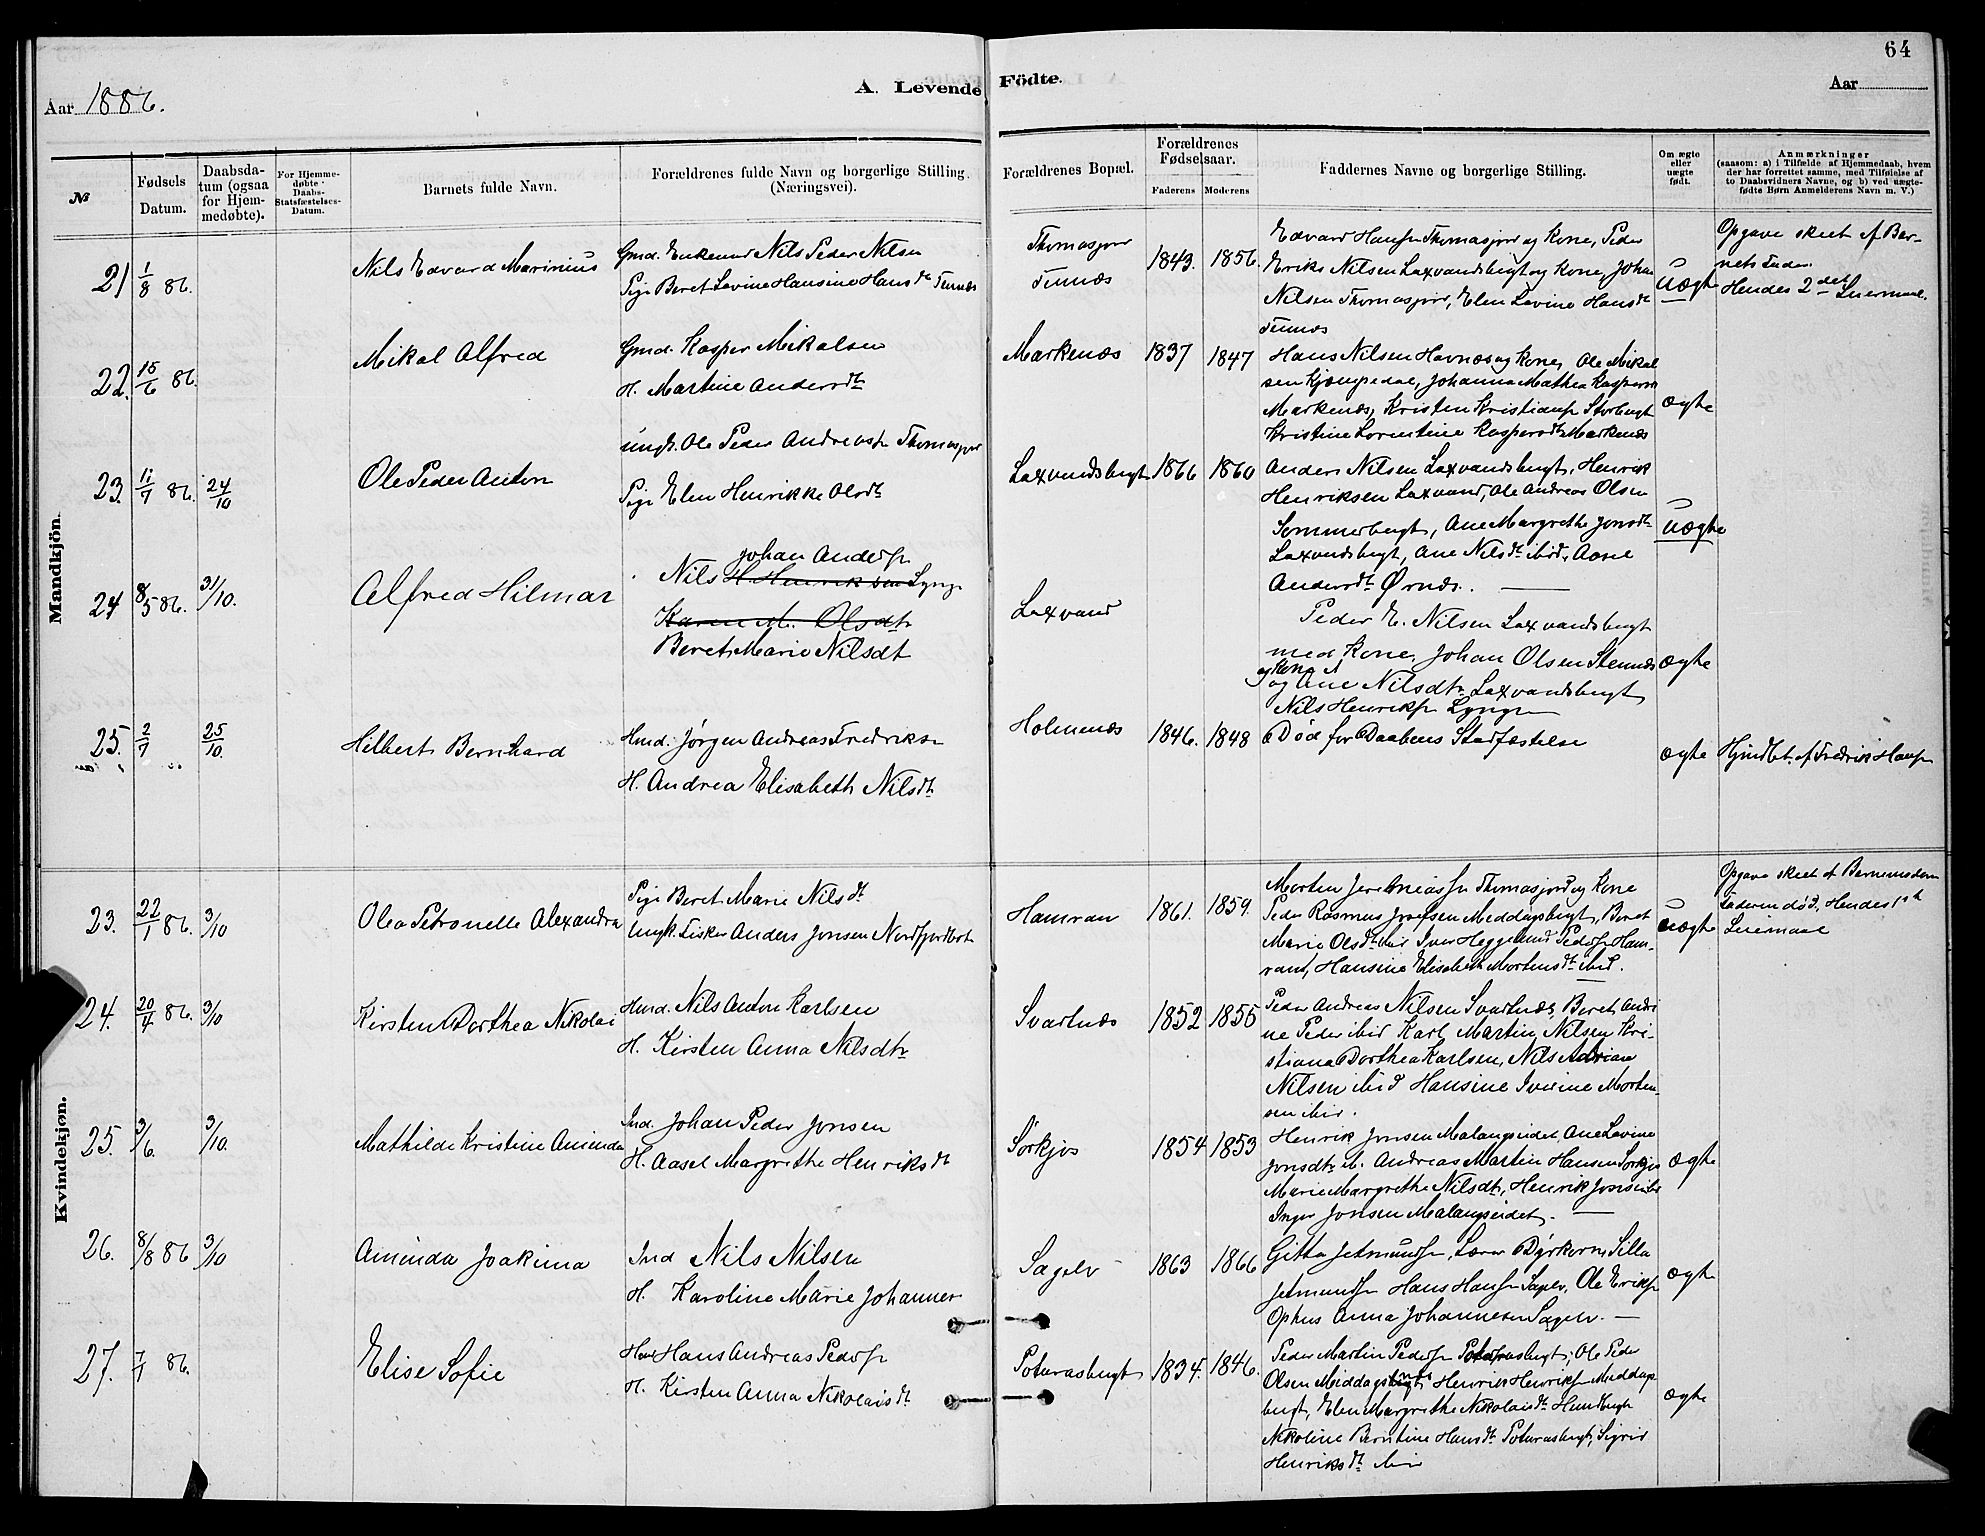 64
Aar 1886.
A. Levende Födte.
Aar
№
Fødsels Datum.
Daabsdatum (ogsaa for Hjemmedøbte).
For Hjemmedøbte Daabs-Statsfæstelses-Datum.
Barnets fulde Navn.
Forældrenes fulde Navn og borgerlige Stilling.
(Næringsvei).
Forældrenes Bopæl.
Forældrenes Fødselsaar.
Faderens
Moderens
Faddernes Navne og borgerlige Stilling.
Om ægte eller uægte født.
Anmærkninger
(saasom: a) i Tilfælde af Hjemmedaab, hvem
der har forrettet samme, med Tilføielse af
to Daabsvidners Navne, og b) ved uægte-
fødte Børn Anmelderens Navn m. V.)
Mandkjön.
21 1/8 86.
Nils Edvard Marinius
Gmd. Enkemd Nils Peder Nilsen
Pige Beret Lovine Hansine Hansdt Tennæs
Thomasjord
Tennæs
1843. 1856.
Edvard Hansen Thomasjord og Kone, Peder
Eriks Nilsen Laxvandsbugt og Kone, Johan
Nilsen Thomasjord, Elen Lovine Hansdt
Tennæs
Uægte
Opgave skeet af Bar-
nets Fader.
Hendes 2det Leiermaal.
22. 15/6 86.
Mikal Alfred
Gmd. Kasper Mikalsen
H. Martine Andersdt
Markenæs
1837 1847
Hans Nilsen Havnæs og Kone, Ole Mikal
sen Kjempedal, Johanna Mathea Kaspersen
Markenæs, Kristen Kristiansen Storbugt
Kristine Lorentine Kaspersdt Markenæs
ægte
23. 11/7 86. 24/10
Ole Peder Anton
Ungk. Ole Peder Andreassen Thomasjord
Pige Elen Henrikke Olsdt
Laxvandsbugt
1866 1860
Anders Nilsen Laxvandsbugt, Henrik
Henriksen Laxvand, Ole Andreas Olsen
Sommerbugt, Ane Margrethe Jonsdt
Laxvandsbugt, Ane Nilsdt ibid, Aasel
Andersdt Ørnæs.
uægte
24 8/5 86. 31/10.
Alfred Hilmar
Johan Andersen
Nils H. Henriksen Lyng
Karen M. Olsdtr
Beret Marie Nilsdt
Laxvand
Peder E. Nilsen Laxvandsbugt
med Kone, Johan Olsen Stennæs
og Kone
og Ane Nilsdtr Laxvandsbugt
Nils Henriksen Lyng
ægte
25. 2/7 25/10
Hilbert Bernhard
Hmd. Jørgen Andreas Fredriksen
H. Andrea Elisabeth Nilsdt
Holmenæs
1846. 1848
Død før Daabens Stadfæstelse
ægte
Hjmdbt. af Fredrik Hansen
Kvindekjøn.
23. 22/1 86. 3/10
Olea Petronelle Alexandra
Pige Beret Marie Nilsdt
Ungk. Fisker Anders Jonsen Nordfjordbotn
Hamran
1861. 1859.
Morten Jeremiassen Thomasjord og Kone
Peder Rasmus Joefsen Meddagsbugt, Beret
Marie Olsdt ibid Iver Heggelund Pedersen Ham-
rand, Hansine Elisabeth Mortensdt ibid.
uægte
Opgave skeet af Barnemoderen
Faderen død. Hendes 1ste
Leiermaal
24. 20/4 86. 3/10
Kirsten Dorthea Nikolai
Hmd. Nils Anton Karlsen
H. Kirsten Anna Nilsdtr
Svartnæs
1852 1855
Peder Andreas Nilsen Svartnæs, Beret Andri
ne Peder ibid Karl Martin Nilsen Kri-
stiana Dorthea Karlsen, Nils Adrian
Nilsen ibid Hansine Iverine Morten-
sen ibid.
25. 3/6. 3/10.
Mathilde Kristine Aminda
Ind. Johan Peder Jonsen
H. Aasel Margrethe Henriksdt
Sørkjos
1854 1853
Henrik Jonsen Malangseidet Ane Lovine
Jonsdtr ib. Andreas Martin Hansen Sørkjos
Marie Margrethe Nilsdtr, Henrik Jonsen ibd
Inger Jonsen Malangseidet.
ægte
26. 8/8 86 3/10
Aminda Joakima
Ind Nils Nilsen
H. Karoline Marie Johannes
Sagelv
1863 1866
Gitta Jetmundsen, Lærer Dyrkorn, Silla
Jetmundsen Hans Hansen Sagelv, Ole Eriksen
Ophus Anna Johannesen Sagelv.
ægte
27. 7/1 86.
Elise Sofie
Hmd Hans Andreas Pedersen
H. Kirsten Anna Nikolaisdt
Poturasbugt
1834. 1846.
Peder Martin Pedersen Poturasbugt, Ole Peder
Olsen Middagsbugt Henrik Henriksen Middags
bugt, Elen Margrethe Nikolaisdt Hundbugt
Nikoline Berntine Hansdt Poturasbugt, Sigrid
Henriksdt ibid
ægte